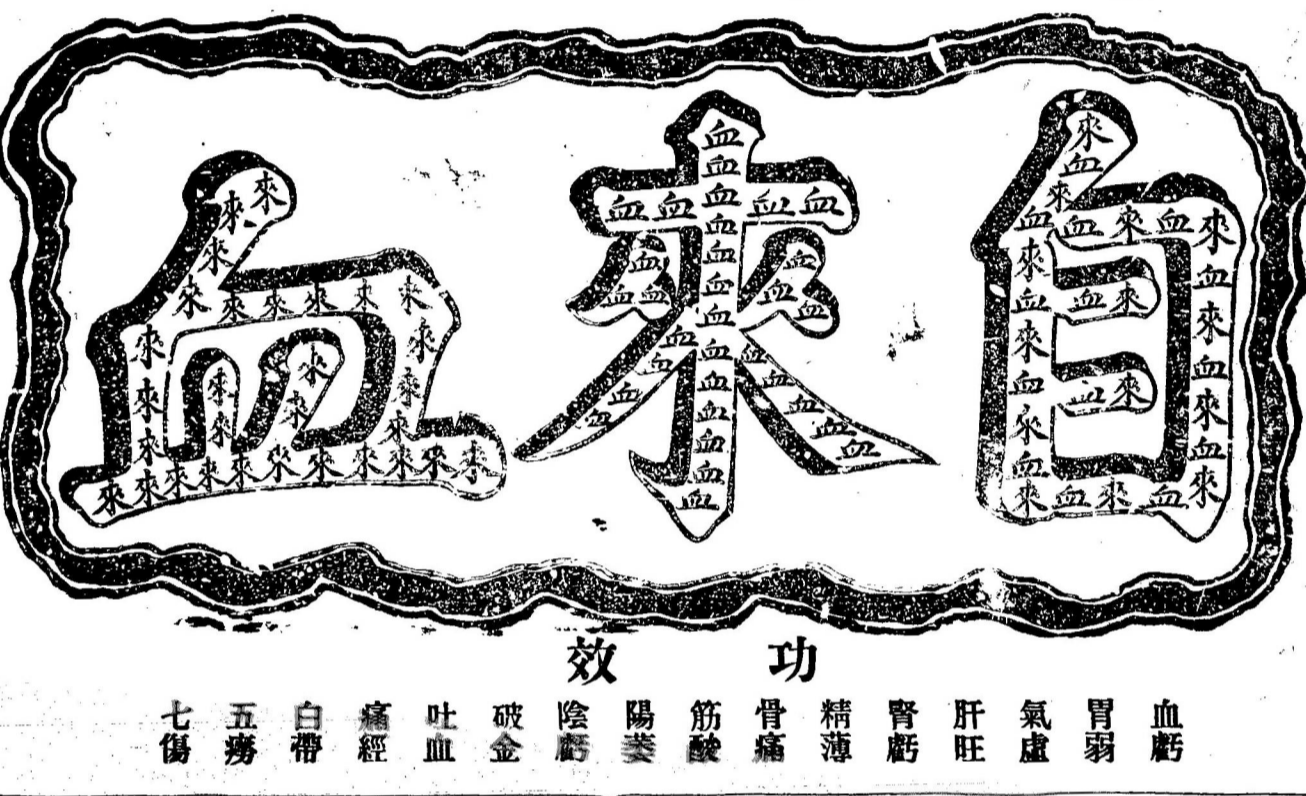 自來血
功效
血虧
胃弱
氣虛
肝旺
腎虧
精薄
骨痛
筋酸
陽萎
陰虧
破金
吐血
痛經
白帶
五癆
七傷